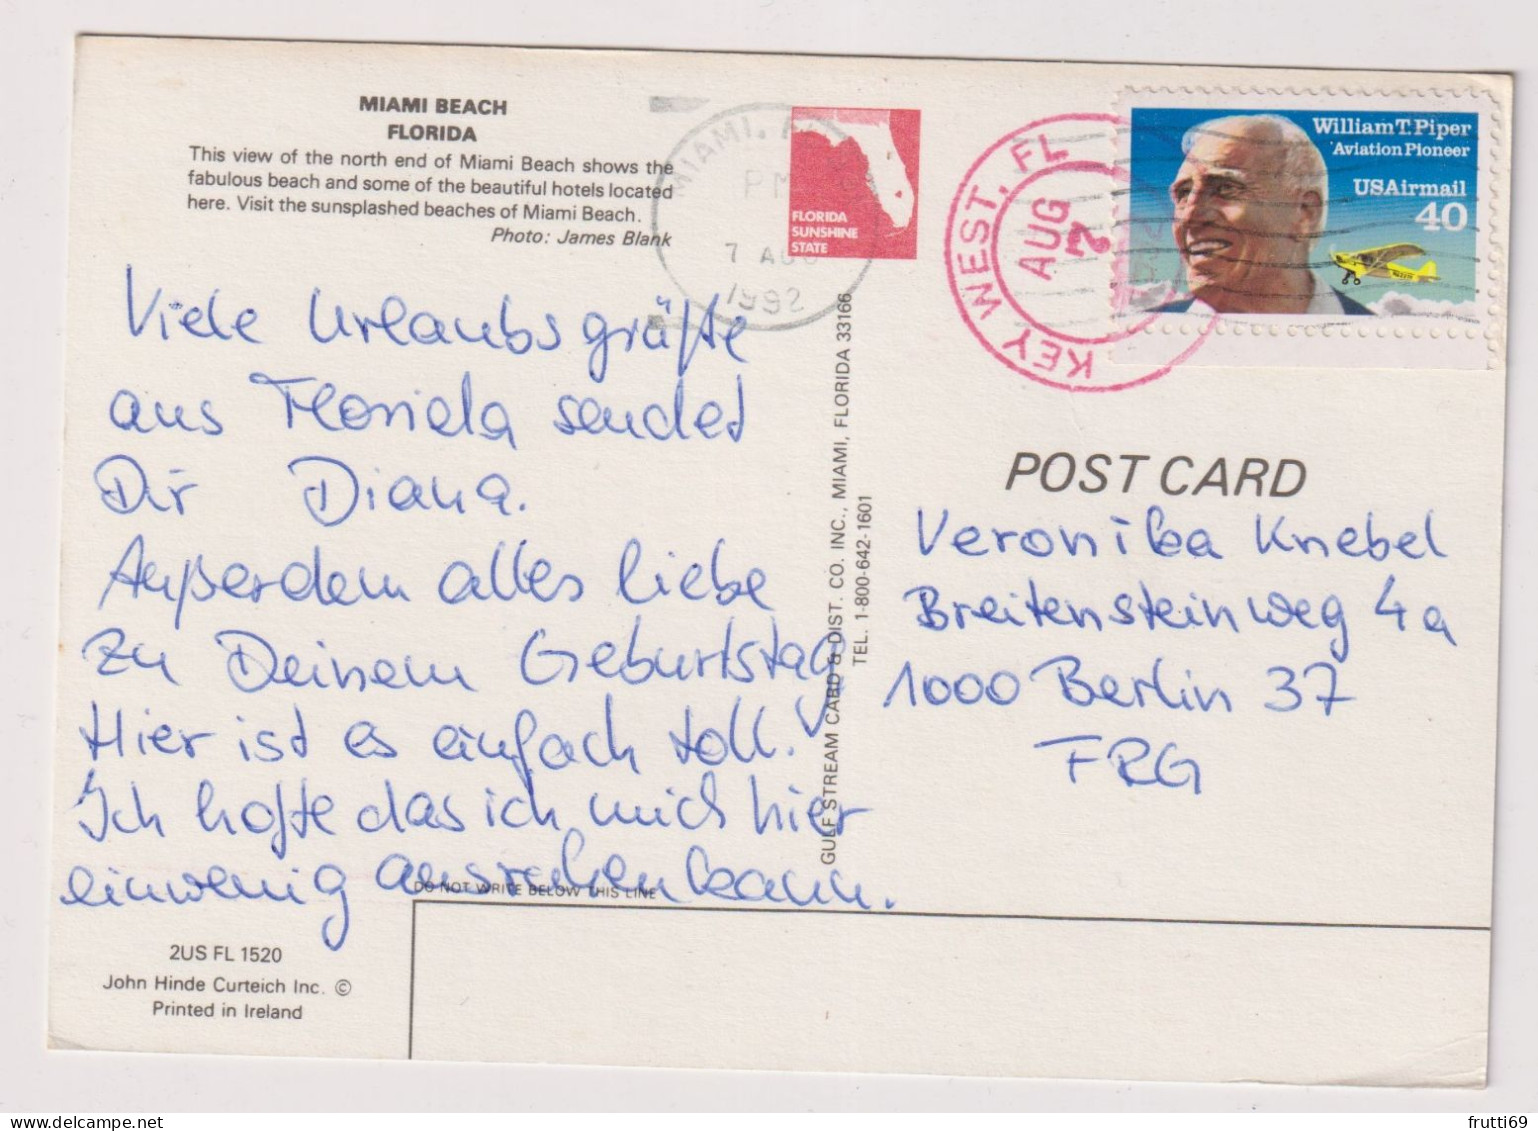 MIAMI BEACH
FLORIDA
This view of the north end of Miami Beach shows the
fabulous beach and some of the beautiful hotels located
here. Visit the sunsplashed beaches of Miami Beach.
Photo: James Blank
MIAMI, FL
PM
7 AUG
1992
FLORIDA
SUNSHINE
STATE
KEY WEST, FL
AUG
7
William T. Piper
Aviation Pioneer
USAirmail
40
Viele Urlaubsgrüße
aus Florida sendet
Dir Diana.
Außerdem alles liebe
zu Deinem Geburtstag
Hier ist es einfach toll.
Ich hoffe das ich mich hier
einwenig ausruhen kann.
GULF STREAM CARD & DIST. CO. INC., MIAMI, FLORIDA 33166
TEL. 1-800-642-1601
POST CARD
Veronika Knebel
Breitensteinweg 4a
1000 Berlin 37
FRG
DO NOT WRITE BELOW THIS LINE
2US FL 1520
John Hinde Curteich Inc. ©
Printed in Ireland
frutti69